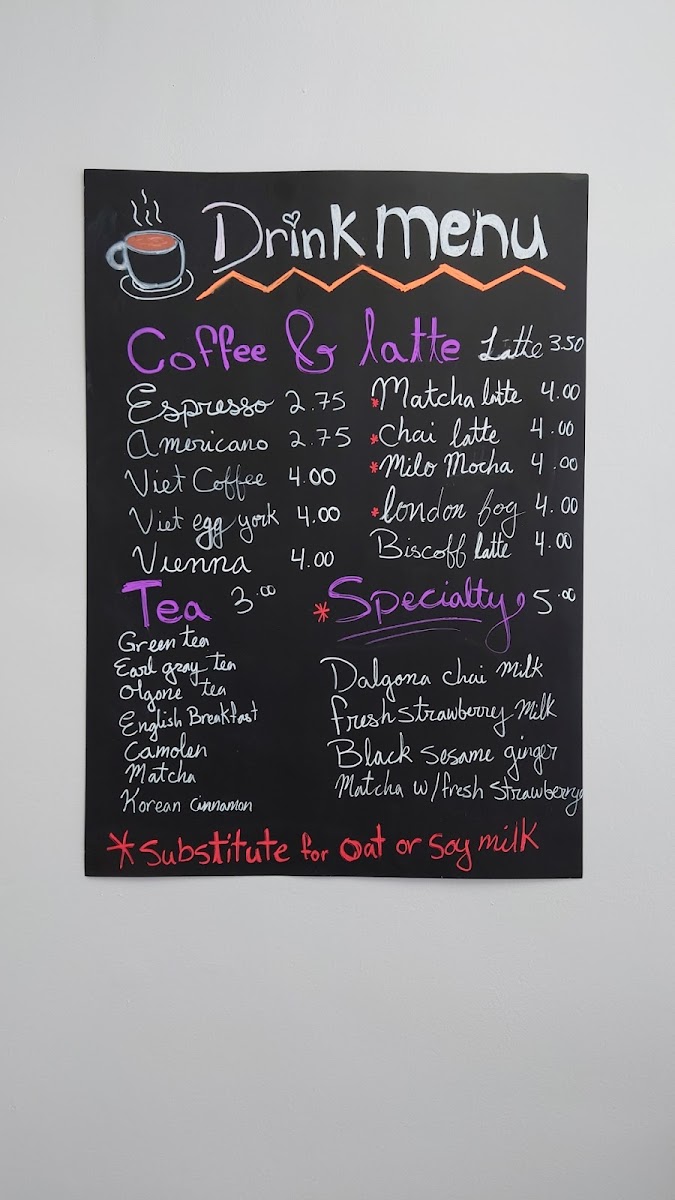 Drink menu
Coffee & latte
Latte 3.50
Espresso 2.75
Americano 2.75
Viet Coffee 4.00
Viet egg york 4.00
Vienna 4.00
*Matcha latte 4.00
*Chai latte 4.00
*Milo Mocha 4.00
*london fog 4.00
Biscoff latte 4.00
Tea 3.00
Green tea
Earl gray tea
Olgone tea
English Breakfast
Camolen
Matcha
Korean Cinnamon
*Specialty 5.00
Dalgona chai Milk
fresh strawberry Milk
Black sesame ginger
Matcha w/fresh strawberry
*Substitute for Oat or Soy milk